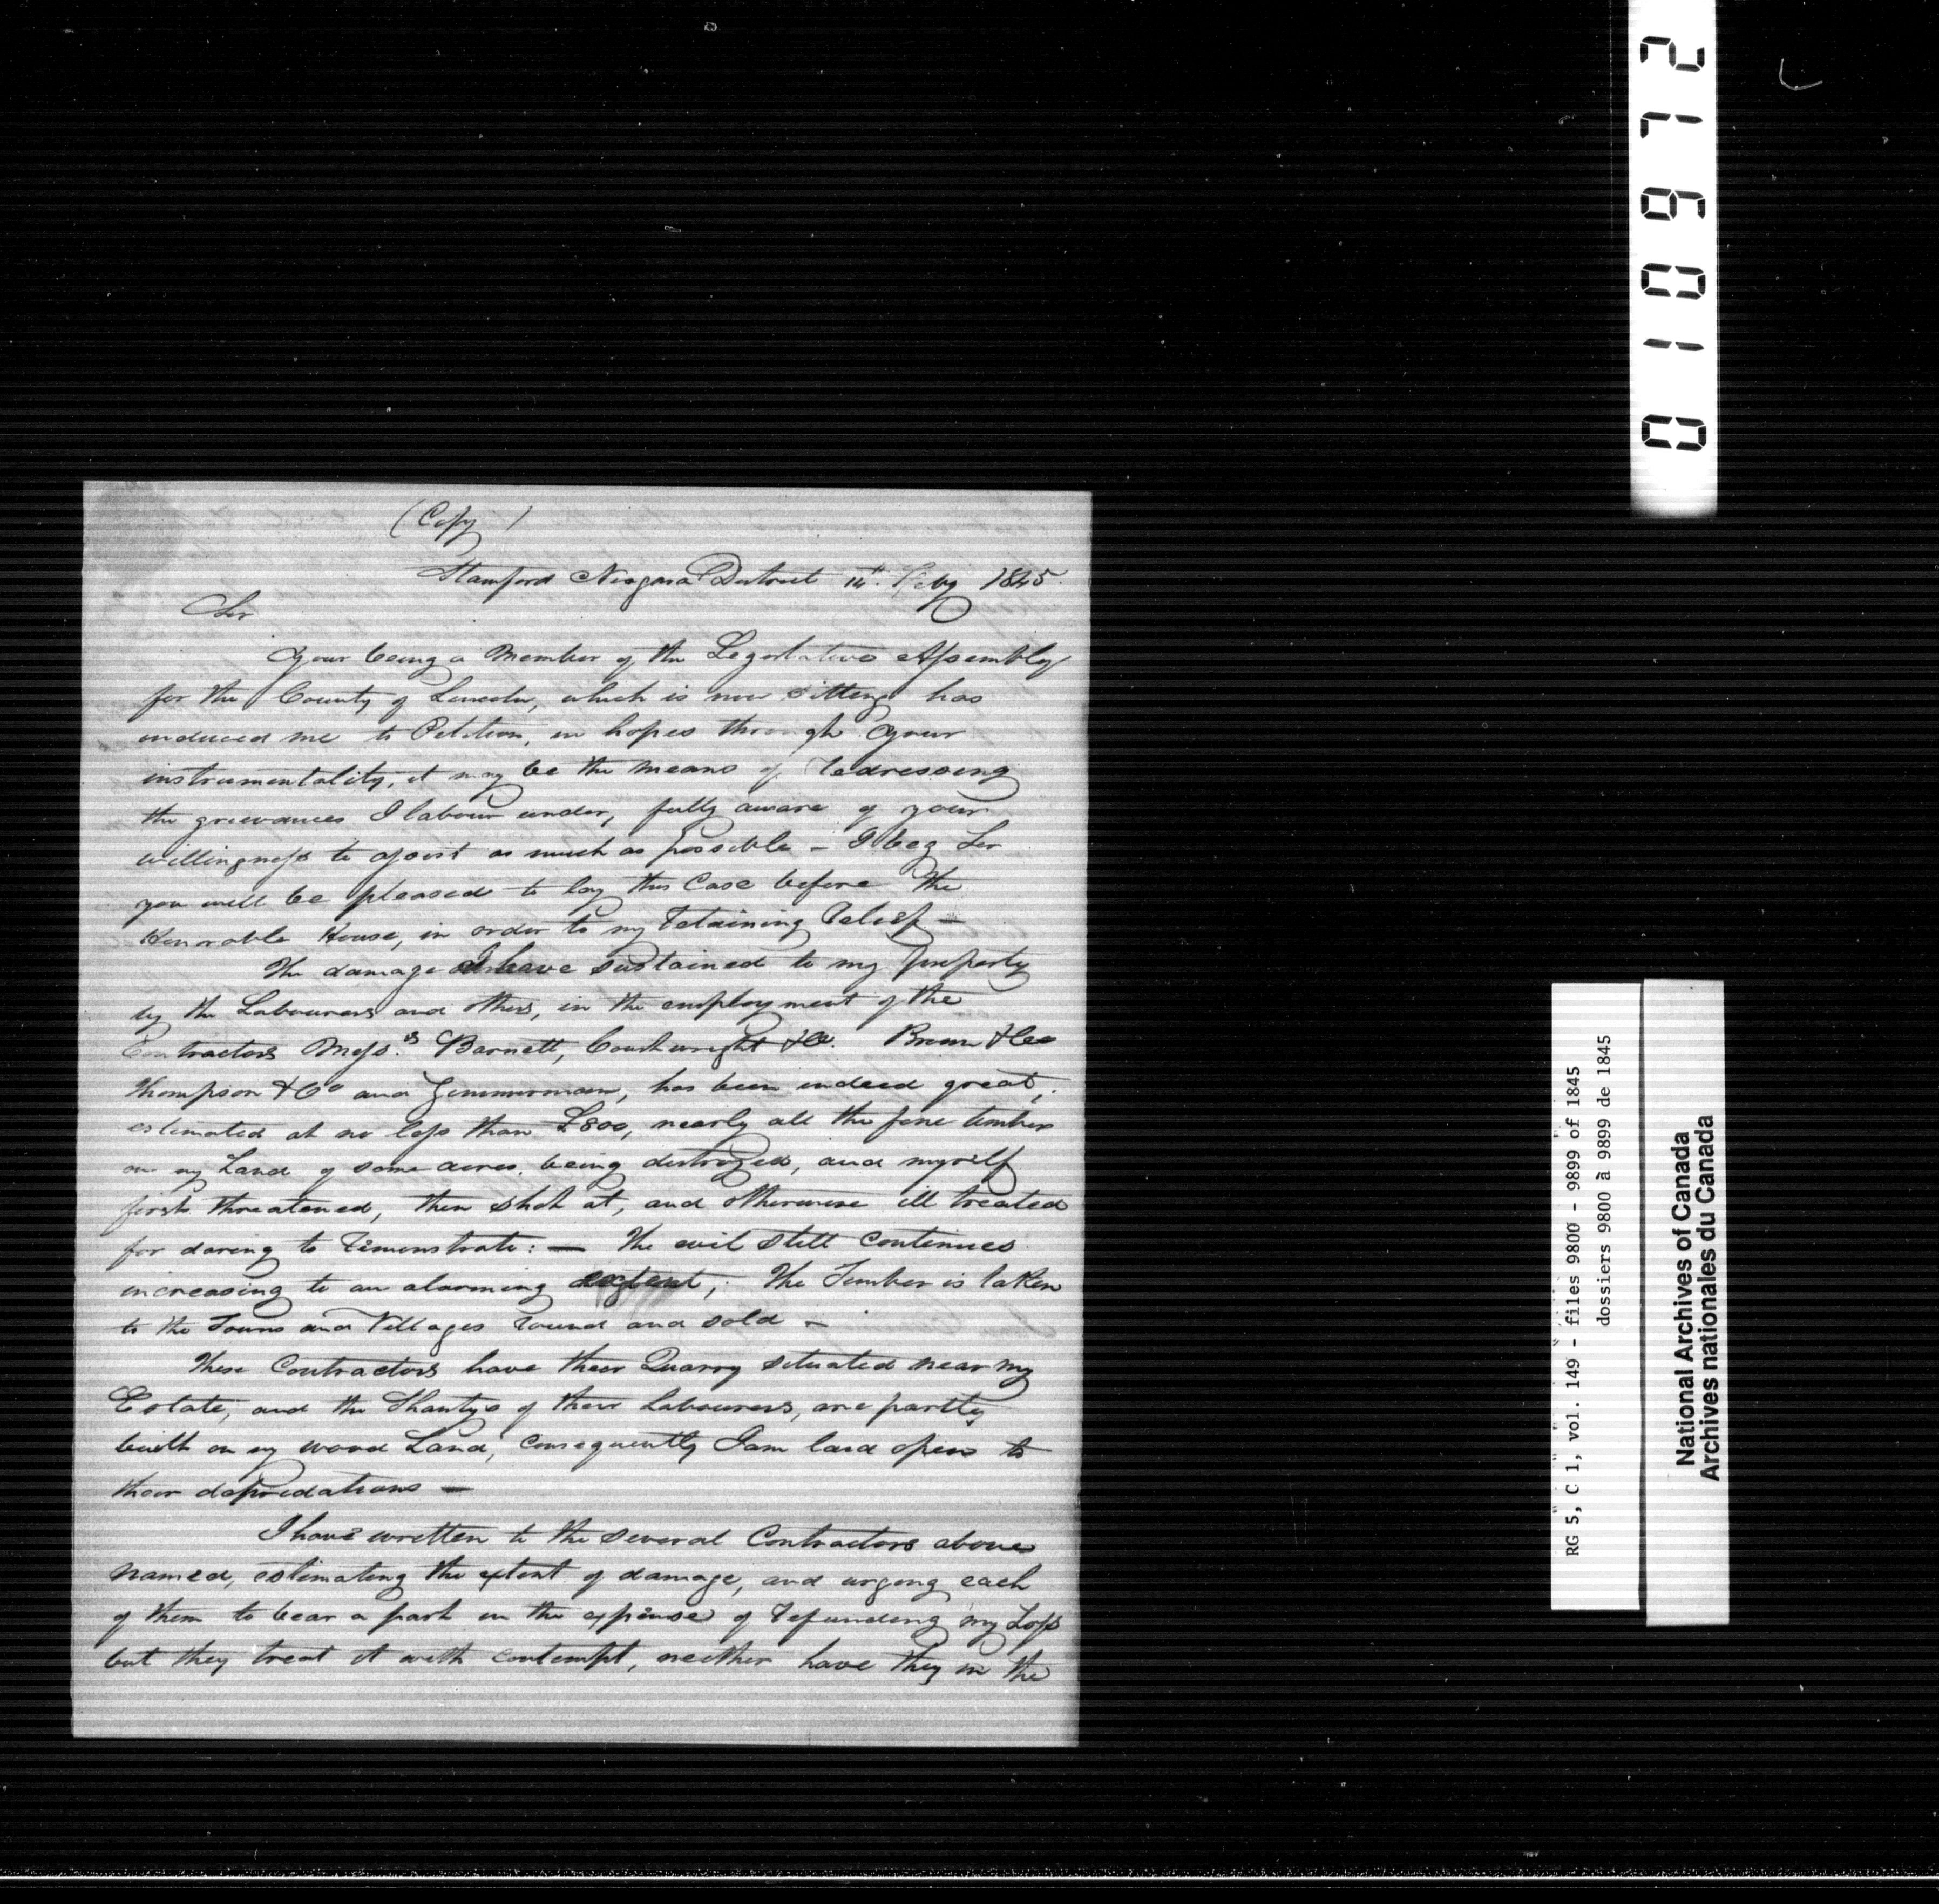 (Copy)
Stamford Niagara District 14th Feby 1845
Sir
Your being a Member of the Legislative Assembly
for the County of Lincoln, which is now sitting has
induced me to Petition, in hopes through your
instrumentality, it may be the means of redressing
the grievances I labour under, fully aware of your
willingness to assist as much as possible – I beg Sir
you will be pleased to lay this Case before the
Honorable House, in order to my retaining relief –
The damage I have sustained to my property
by the Labourers and others, in the employment of the
Contractors Messrs Barnett, Courtwright & Co. Brown & Co
Thompson & Co and Zimmerman, has been indeed great,
estimated at no less than £800, nearly all the fine timber
on my Land of some acres, being destroyed, and myself
first threatened, then shot at, and otherwise ill treated
for daring to remonstrate: – The evil still continues
increasing to an alarming extent; The Timber is taken
to the Towns and Villages round and sold –
These Contractors have their Quarry situated near my
Estate, and the Shantys of their Labourers, are partly
built on my wood Land, consequently I am laid open to
their depredations –
I have written to the several Contractors above
named, estimating the extent of damage, and urging each
of them to bear a part in the expense of refunding my Loss
but they treat it with contempt, neither have they in the
010972
RG 5, C 1, vol. 149 - files 9800 - 9899 of 1845
dossiers 9800 à 9899 de 1845
National Archives of Canada
Archives nationales du Canada